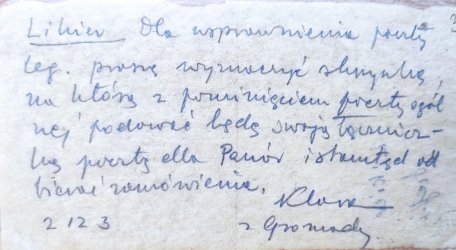 Likier Dla usprawnienia poczty
leg. proszę wyznaczyć skrzynkę,
na którą z pominięciem poczty ogól
nej podawać będę swoją łącznicz-
ką pocztę dla Panów i stamtąd od
bierać zamówienia.
Klara
2123 z Gromady